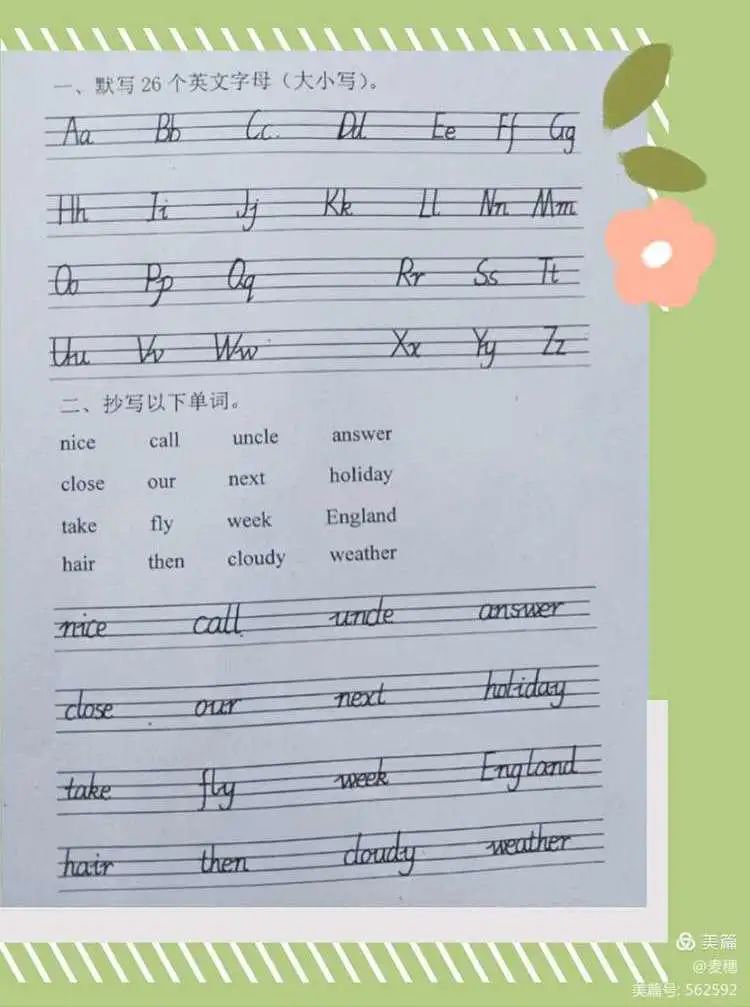 一、默写26个英文字母（大小写）。
Aa Bb Cc Dd Ee Ff Gg
Hh Ii Jj Kk Ll Nn Mm
Oo Pp Qq Rr Ss Tt
Uu Vv Ww Xx Yy Zz
二、抄写以下单词。
nice call uncle answer
close our next holiday
take fly week England
hair then cloudy weather
nice call uncle answer
close our next holiday
take fly week England
hair then cloudy weather
美篇
@麦穗
美篇号: 562592